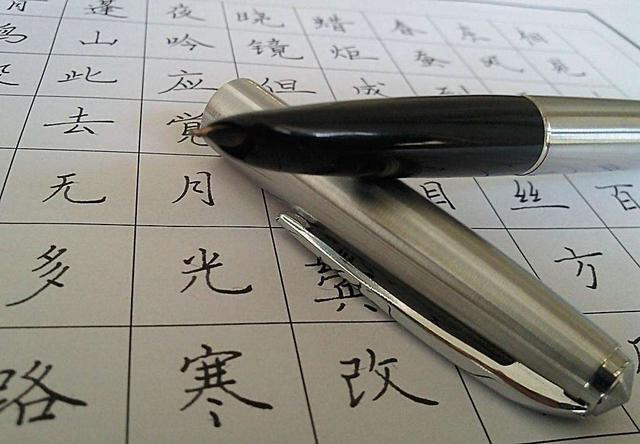 相见
东风百
春蚕到丝方
蜡炬成
晓镜但鬓改
夜吟应覺月光寒
蓬山此去无多路
鸟